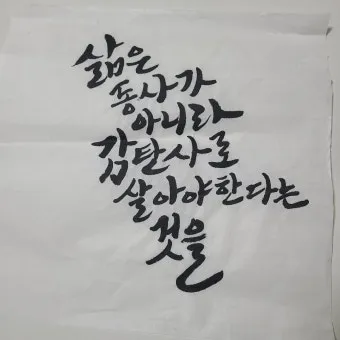 삶은
종사가
아니라
감탄사로
살아야한다는
것을